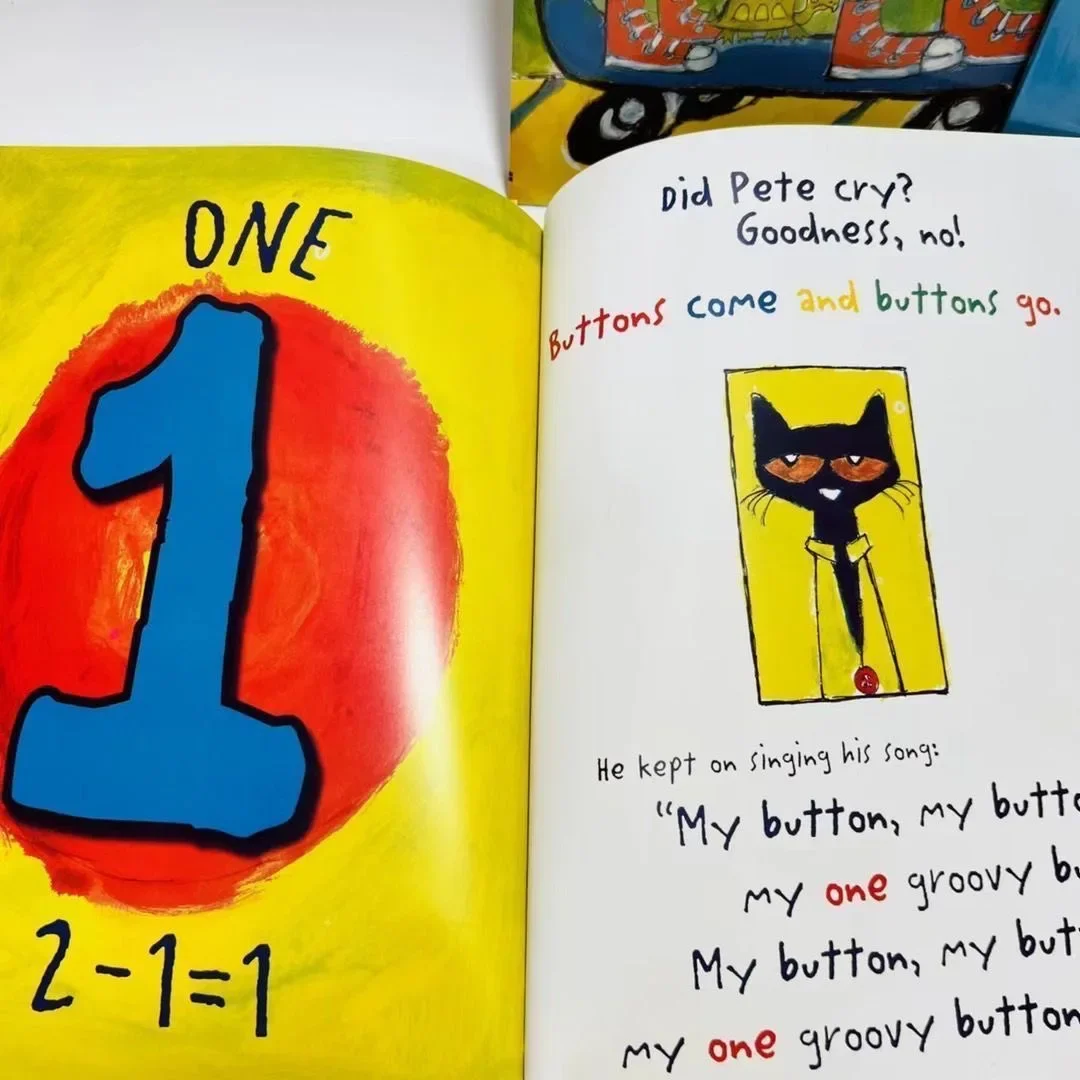 ONE
1
2-1=1
Did Pete cry?
Goodness, no!
Buttons come and buttons go.
He kept on singing his song:
"My button, my butto
my one groovy bu
My button, my but
my one groovy button